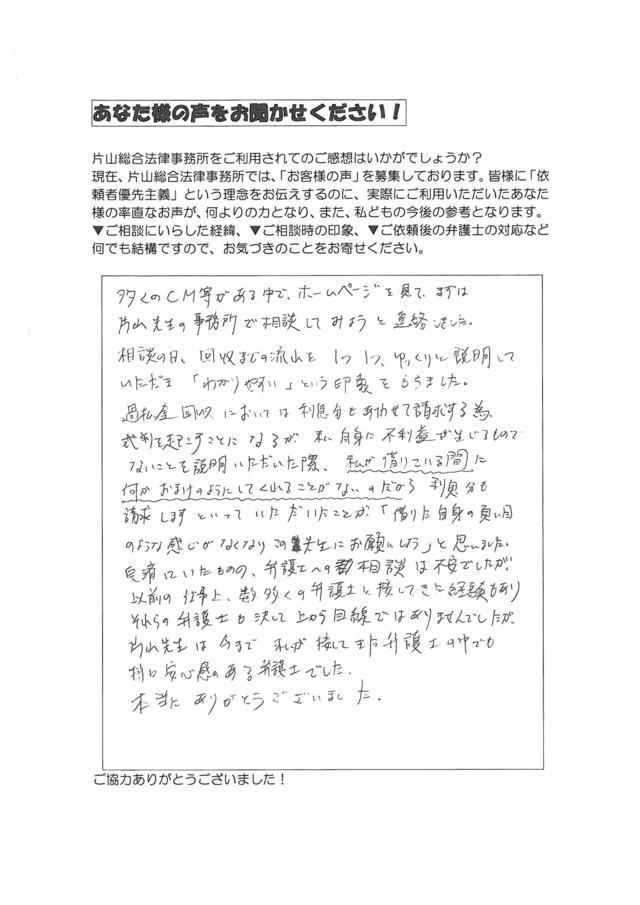 あなた様の声をお聞かせください！
片山総合法律事務所をご利用されてのご感想はいかがでしょうか？
現在、片山総合法律事務所では、「お客様の声」を募集しております。皆様に「依
頼者優先主義」という理念をお伝えするのに、実際にご利用いただいたあなた
様の率直なお声が、何よりの力となり、また、私どもの今後の参考となります。
▼ご相談にいらした経緯、▼ご相談時の印象、▼ご依頼後の弁護士の対応など
何でも結構ですので、お気づきのことをお寄せください。
多くのCM等がある中で、ホームページを見て、まずは
片山先生の事務所で相談してみようと連絡しました。
相談の日、回収までの流れを1つ1つ、ゆっくりと説明して
いただき「わかりやすい」という印象をもちました。
過払金回収においては利息分もあわせて請求する為、
裁判を起こすことになるが、私自身に不利益が生じるもので
ないことを説明いただいた際、私が借りている間に
何かおまけのようにしてくれることがないのだから利息分も
請求しますといっていただいたことが「借りた自身の負い目
のような感じがなくなりこの先生にお願いしよう」と思いました。
完済していたものの、弁護士への相談は不安でしたが、
以前の仕事上、数多くの弁護士と接してきた経験もあり
それらの弁護士も決して上から目線ではありませんでしたが、
片山先生は今まで私が接してきた弁護士の中でも
特に安心感のある弁護士でした。
本当にありがとうございました。
ご協力ありがとうございました！